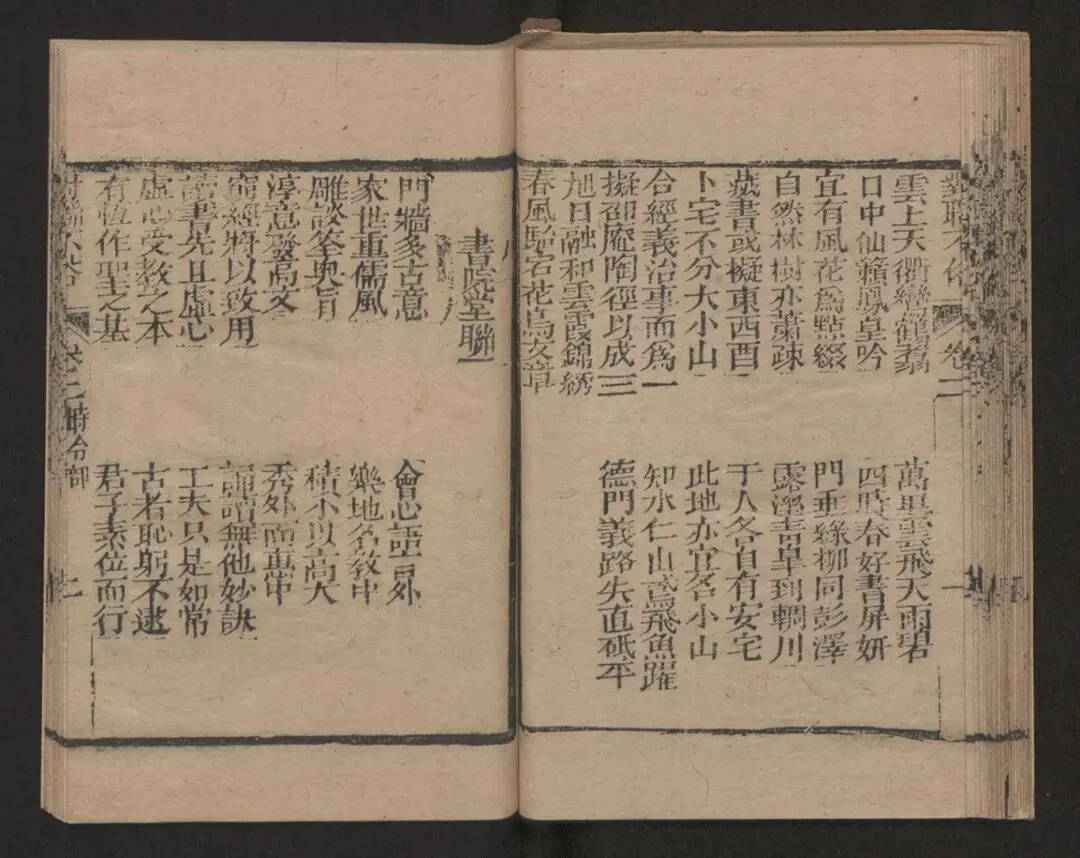 對聯大全
卷二
雲上天衢巒鶴翥
萬里雲飛天雨碧
口中仙籟鳳皇吟
四時春好書屏妍
宜有風花爲點綴
門垂綠柳同彭澤
自然林樹亦蕭疎
露溼青皐到輞川
藏書或擬東西酉
于人各自有安宅
卜宅不分大小山
此地亦宜名小山
合經義治事而爲一
知水仁山鳶飛魚躍
擬邵庵陶徑以成三
德門義路矢直砥平
旭日融和雲霞錦綉
春風駘宕花鳥文章
書院堂聯
門牆多古意
會心語言外
家世重儒風
樂地名教中
雕談筌奧旨
積小以高大
淳意發高文
秀外而惠中
窮經將以致用
誦讀無他妙訣
讀書先且虛心
工夫只是如常
虛心受教之本
古者恥躬不逮
有恆作聖之基
君子素位而行
卷二
時令部